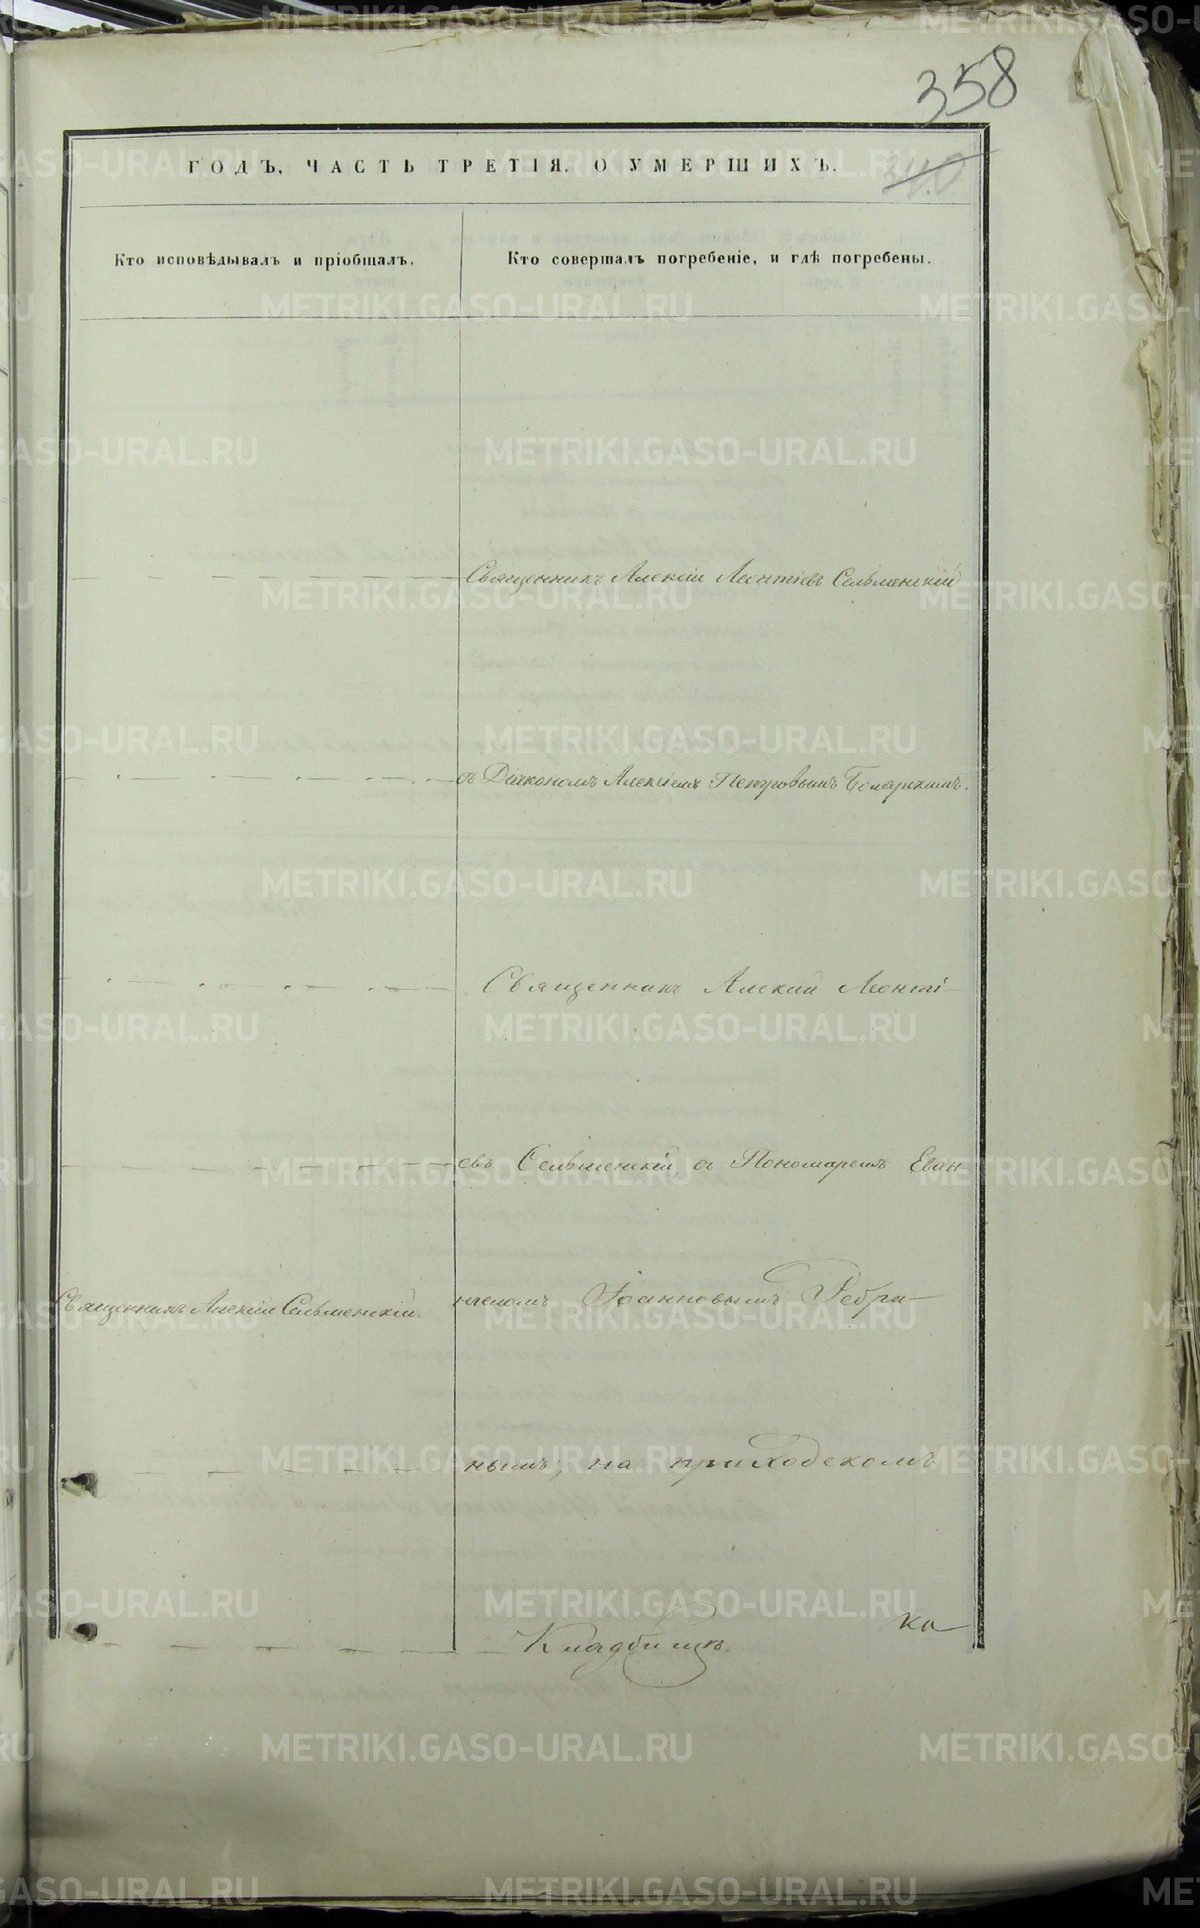 358
240
ГОДЪ, ЧАСТЬ ТРЕТІЯ, О УМЕРШИХЪ.
Кто исповѣдывалъ и пріобщалъ.
Кто совершалъ погребеніе, и гдѣ погребены.
Священникъ Алексій Леонтіевъ Сельменскій
съ Діакономъ Алексіемъ Петровымъ
Священникъ Алексій Леонті-
евъ Сельменскій, съ Пономаремъ Еван-
Священникъ Алексій Сельменскій.
геломъ Іоанновымъ Ребри-
нымъ, на приходскомъ
Кладбищѣ.
ка
METRIKI.GASO-URAL.RU